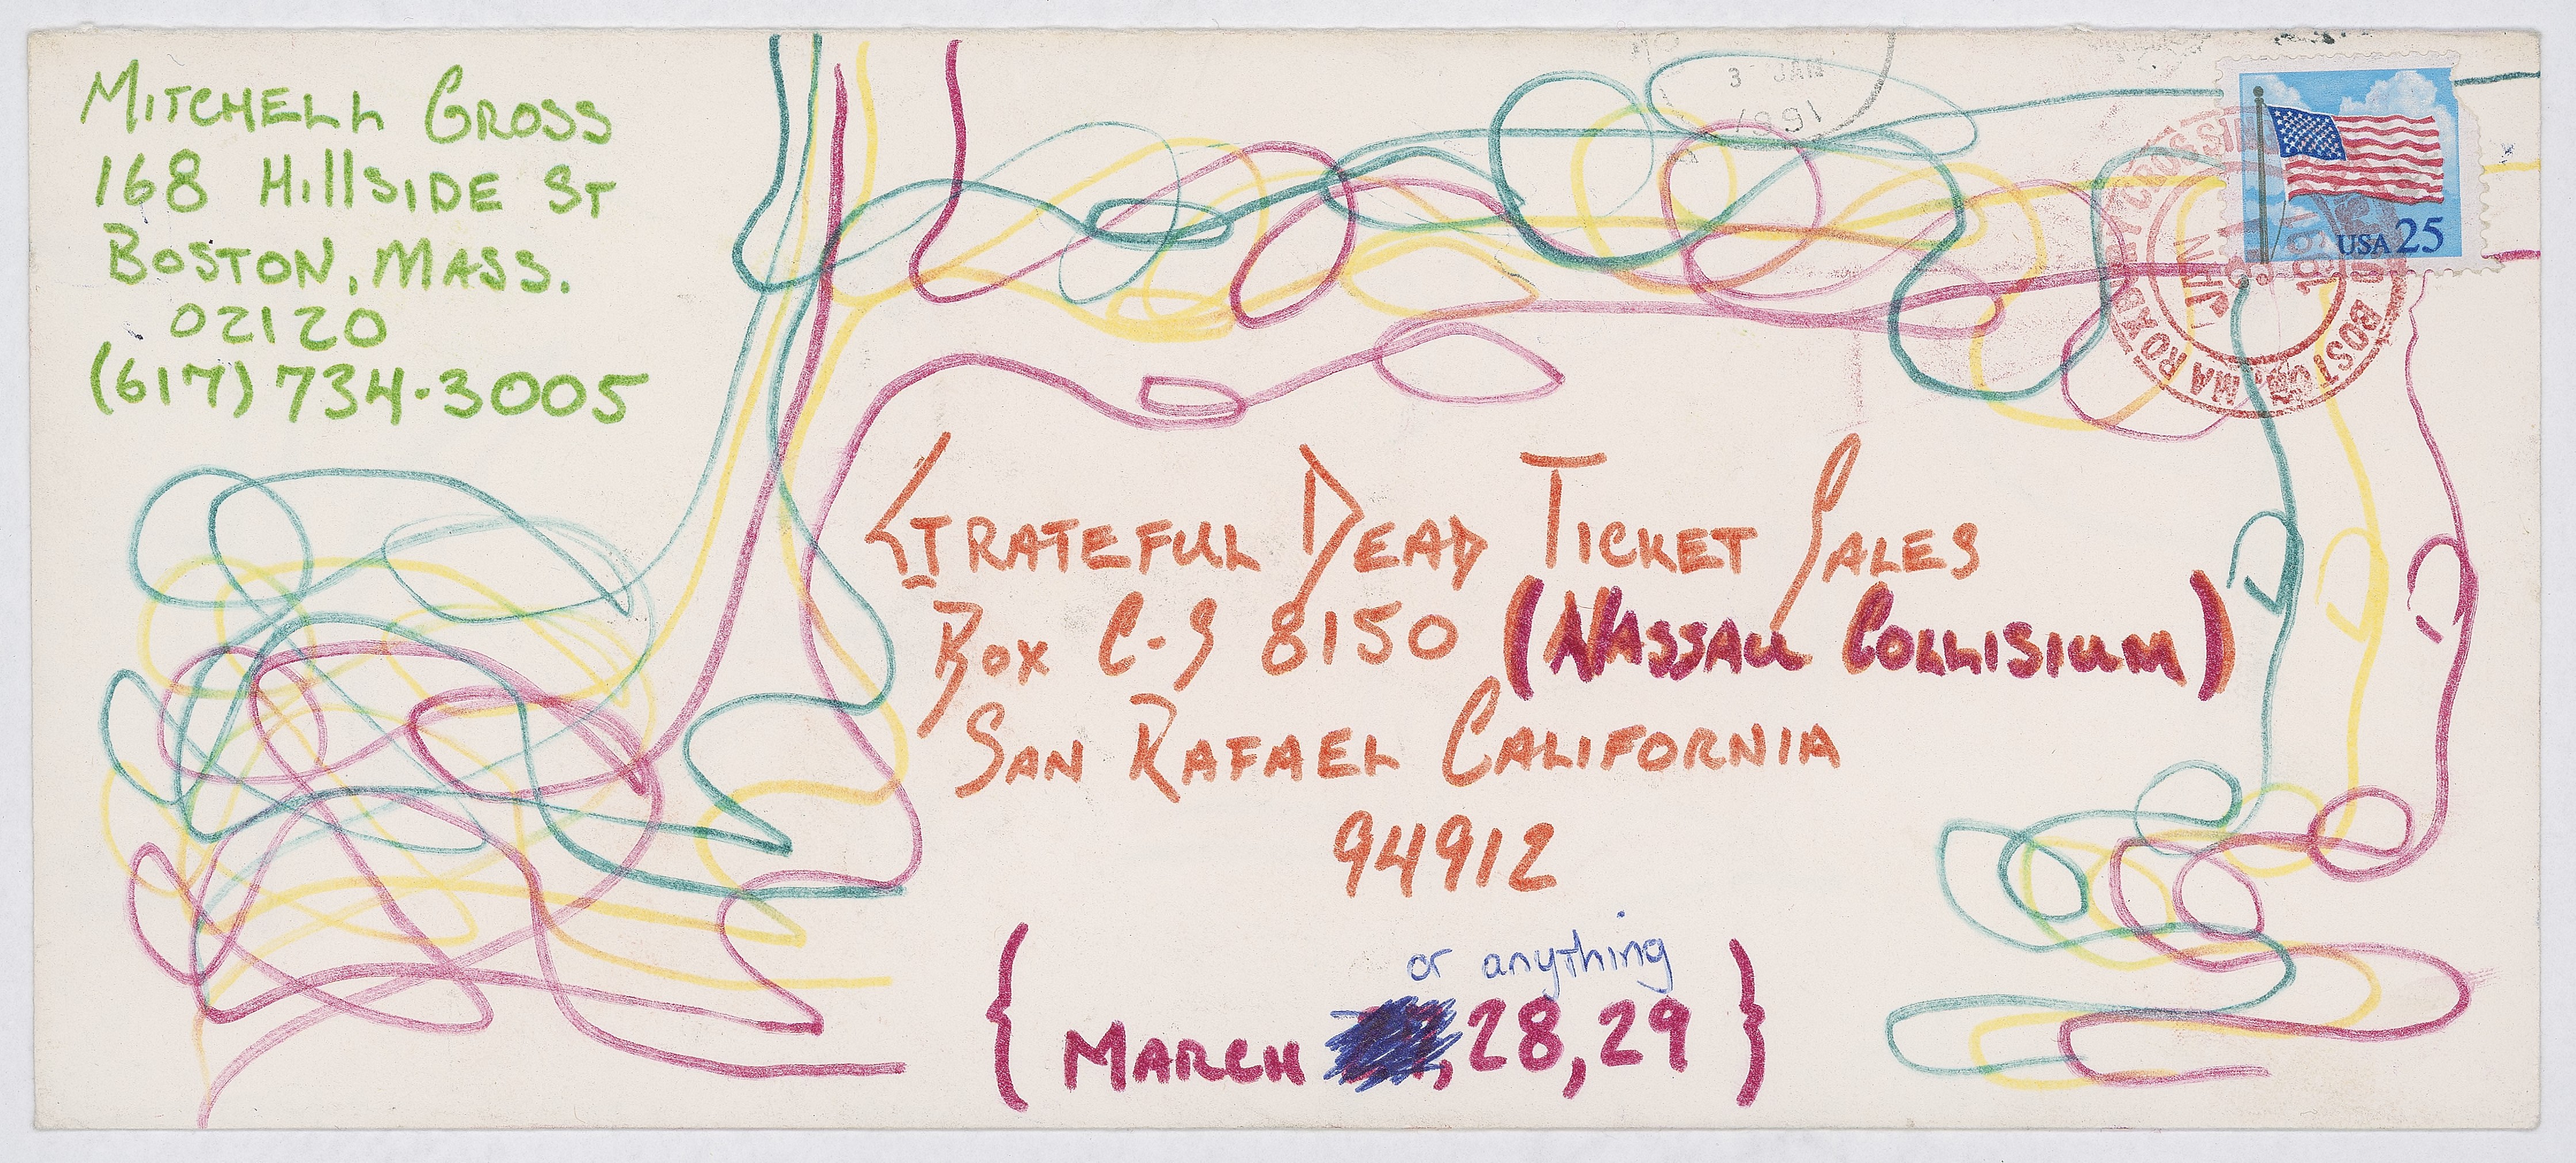 MITCHELL GROSS
168 HillSIDE ST
BOSTON, MASS.
02120
(617) 734-3005
3 JAN
1991
USA 25
GRATEFUL DEAD TICKET SALES
BOX C-S 8150 (NASSAU COLLISIUM)
SAN RAFAEL CALIFORNIA
94912
or anything
{ MARCH , 28, 29 }